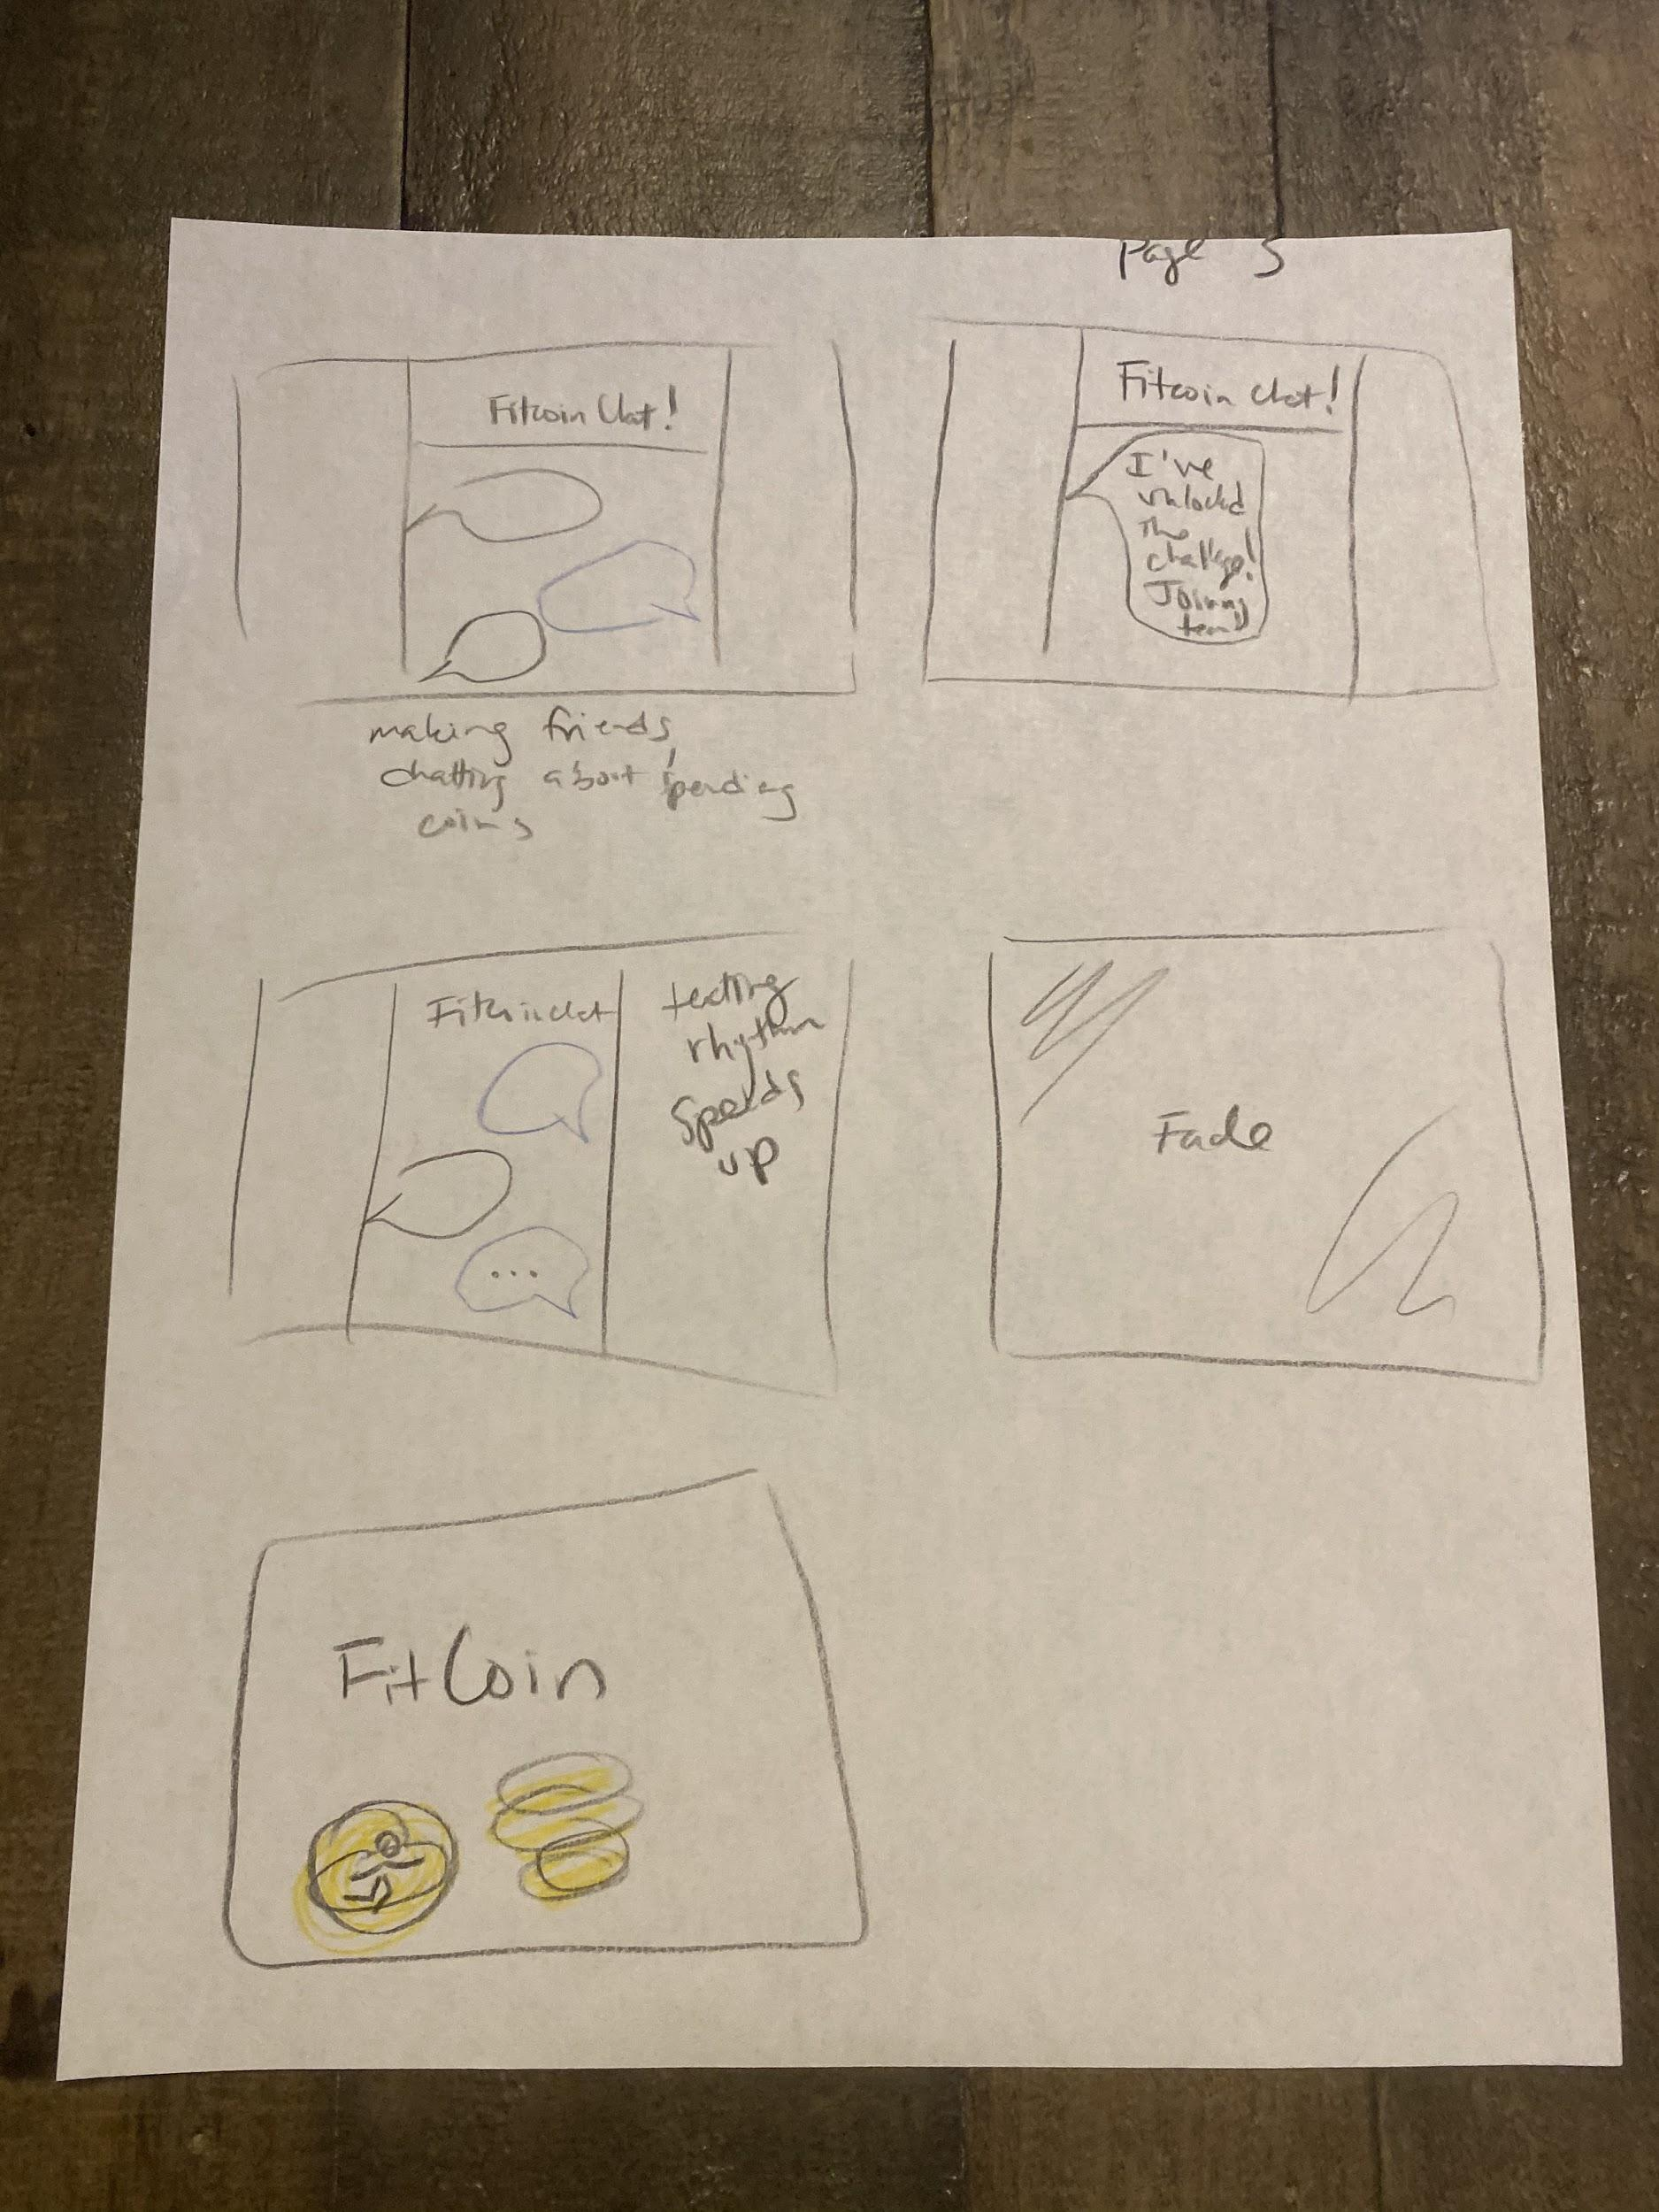 Page 3
Fitcoin Chat!
making friends,
chatting about spending
coins
Fitcoin Chat!
I've
unlocked
the
challenge!
Joining
team!
Fitcoin Chat
texting
rhythm
speeds
up
...
Fade
FitCoin